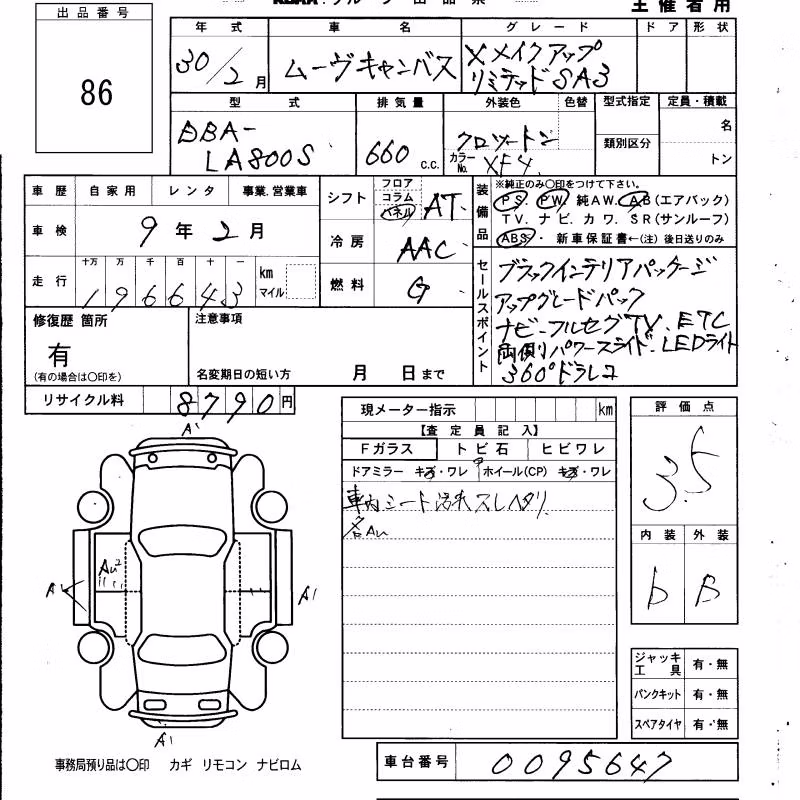 出品番号
86
主催者用
年式
30/2月
車名
ムーヴキャンバス
グレード
Xメイクアップ
リミテッドSA3
ドア 形状
型式
DBA-
LA800S
排気量
660 c.c.
外装色 色替
カラーNo. XF4
型式指定
類別区分
定員・積載
名
トン
車歴 自家用 レンタ 事業.営業車
車検 9年2月
走行 十万 万 千 百 十 一
196643 km マイル
シフト フロア コラム パネル AT
冷房 AAC
燃料 G
装備品
※純正のみ〇印をつけて下さい。
PS. PW. 純AW. AB(エアバック)
TV. ナビ. カワ. SR(サンルーフ)
ABS・ 新車保証書←(注) 後日送りのみ
セールスポイント
ブラックインテリアパッケージ
アップグレードパック
ナビ-フルセグTV. ETC
両側パワースライド. LEDライト
360°ドラレコ
修復歴 箇所
有
(有の場合は〇印を)
注意事項
名変期日の短い方 月 日まで
リサイクル料 8790円
現メーター指示 km
【査定員記入】
Fガラス トビ石 ヒビワレ
ドアミラー キズ・ワレ ホイール(CP) キズ・ワレ
車内シート汚れスレヘタリ
各AU
評価点
3.5
内装 外装
b B
A1
AU2
A
A1
A1
ジャッキ工具 有・無
パンクキット 有・無
スペアタイヤ 有・無
事務局預り品は〇印 カギ リモコン ナビロム
車台番号 0095647